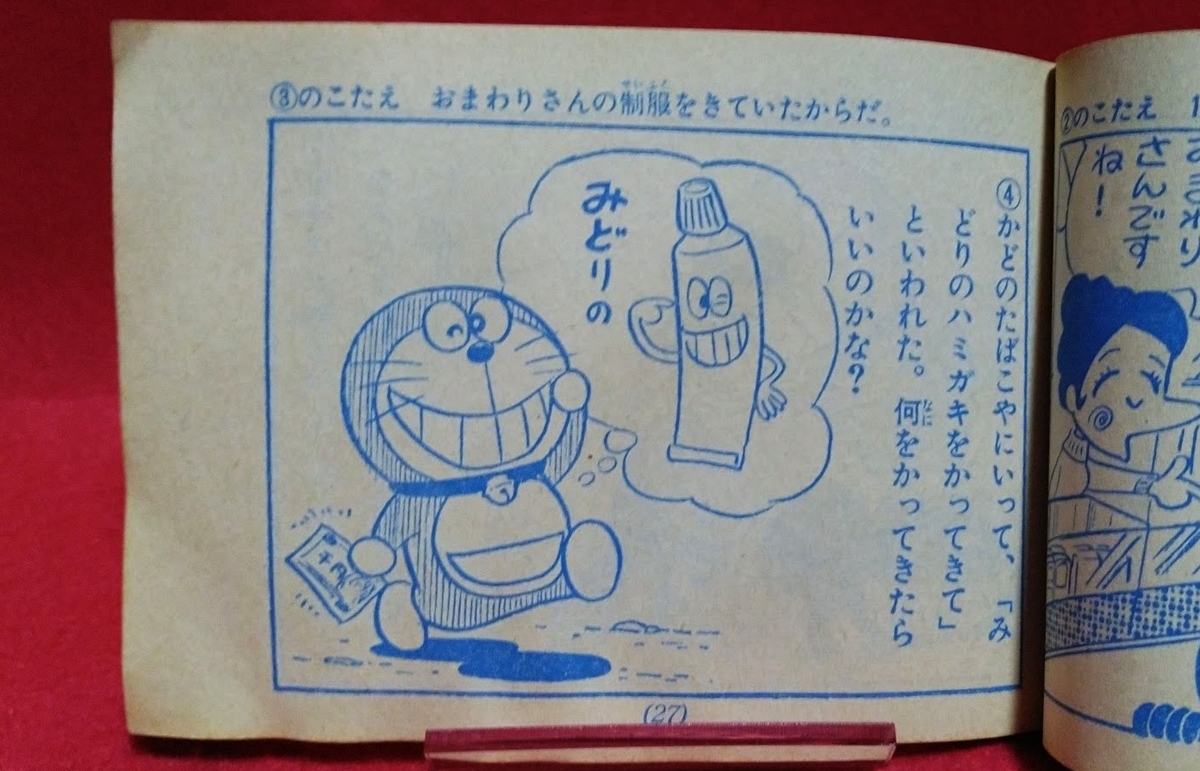 ③のこたえ　おまわりさんの制服をきていたからだ。
せいふく
④かどのたばこやにいって、「み
どりのハミガキをかってきて」
といわれた。何をかってきたら
なに
いいのかな？
みどりの
千円
(27)
②のこたえ
さんです
ね！